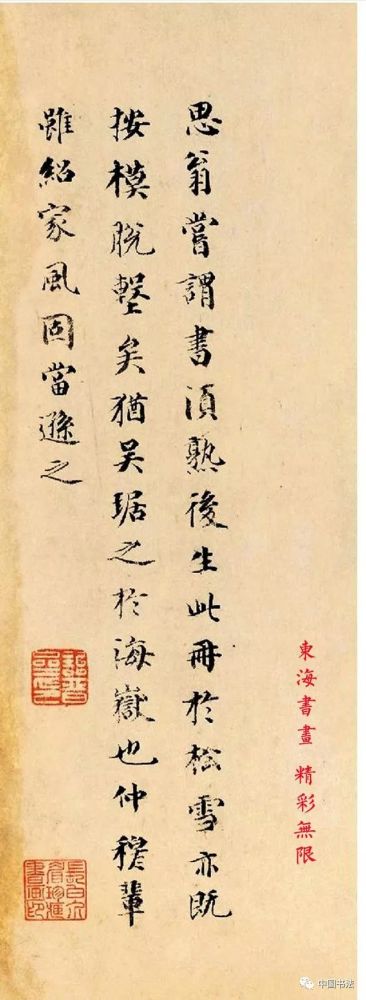 思翁嘗謂書須熟後生此冊於松雪亦既
按模脫墼矣猶吴琚之於海嶽也仲穆輩
雖紹家風固當遜之
東海書畫 精彩無限
中国书法